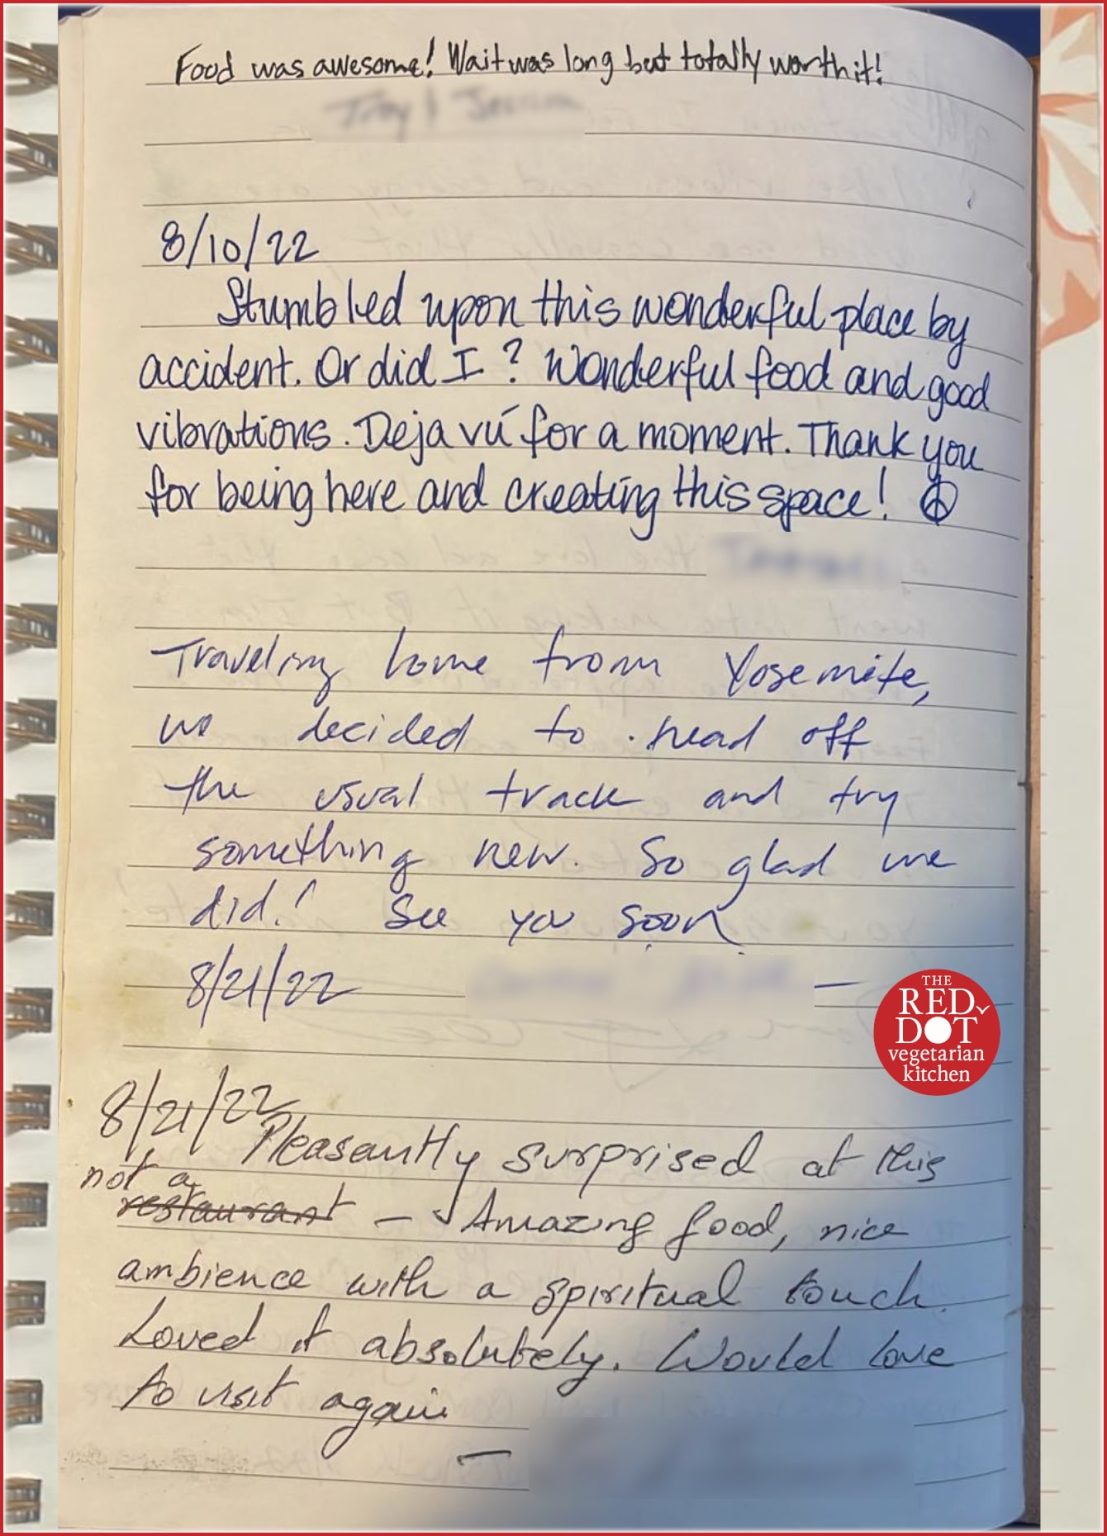 Food was awesome! Wait was long but totally worth it!
8/10/22
Stumbled upon this wonderful place by
accident. Or did I? Wonderful food and good
vibrations. Deja vú for a moment. Thank you
for being here and creating this space!
Traveling home from Yosemite,
we decided to head off
the usual track and try
something new. So glad we
did! See you soon
8/21/22
THE
RED
DOT
vegetarian
kitchen
8/21/22
Pleasantly surprised at this
not a
restaurant – Amazing food, nice
ambience with a spiritual touch.
Loved it absolutely. Would love
to visit again